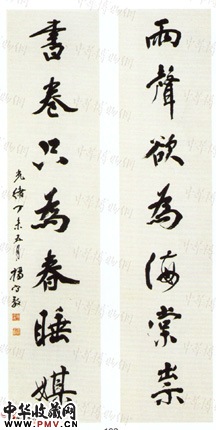 雨聲欲為海棠祟
書卷只為春睡媒
光緒丁未五月楊守敬
中华收藏网
www.PMV.CN